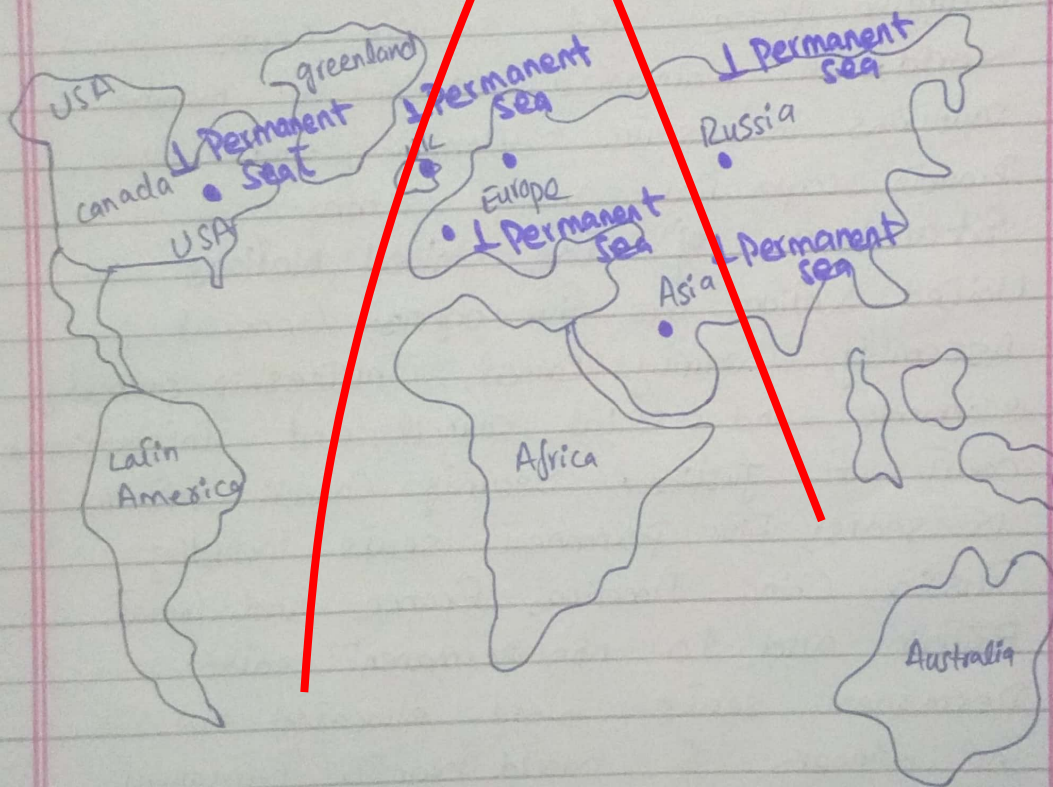 USA
greenland
1 Permanent
seat
canada
USA
1 Permanent
sea
UK
Europe
1 Permanant
sea
1 Permanent
sea
Russia
1 Permanent
sea
Asia
Latin
America
Africa
Australia